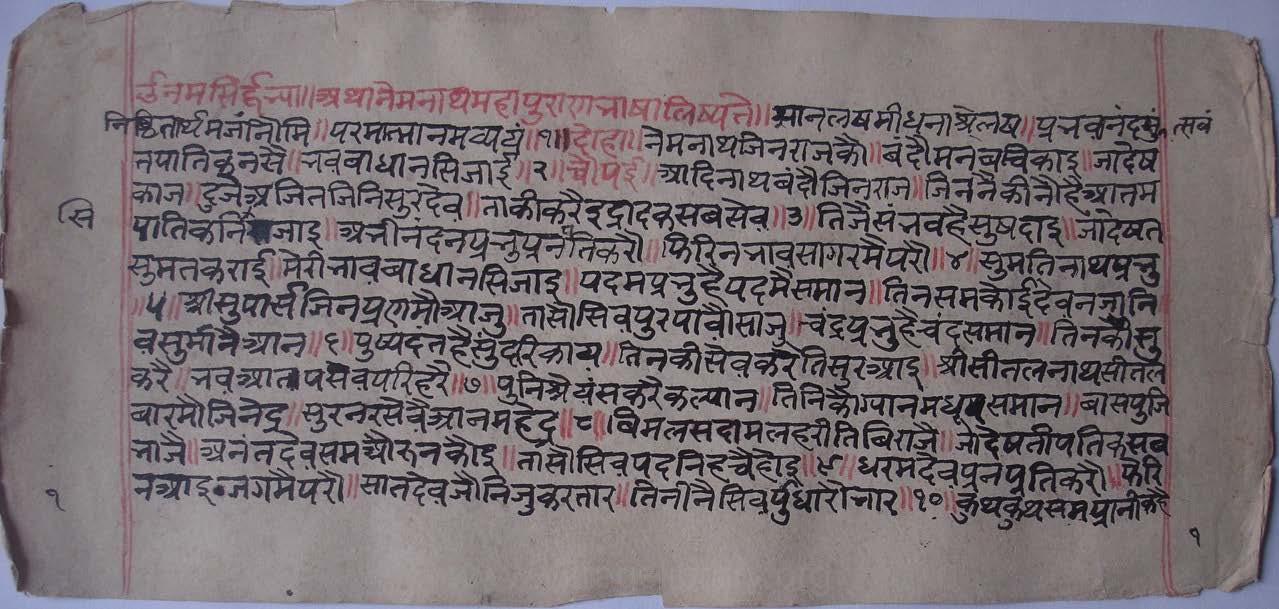 र्उनमसिर्द्धेन्या॥अथानेमनाथमहापुराणभाषालिष्यते॥ज्ञानलषमीधनाश्लेलष॥प्रभवानंद
निष्ठितार्थमजंनौमि॥परमात्मानमव्ययं॥१॥दोहा॥नेमनाथजिनराजकौ॥बंदौमनबचकाइ॥जादेष
तपातिकनसै॥भवबाधानसिजाई॥२॥चौपई॥आदिनाथबंदौजिनराज॥जिननैकीनौहैआतम
काज॥दुजेअजितजिनिसुरदेव॥ताकीकरैइंद्रादकसबसेव॥३॥तिजैसंभवहैसुषदाइ॥जादेषत
पातिकनिजाइ॥अभीनंदनप्रभुप्रनतिकरौ॥फिरिनभावसागरमैपरौ॥४॥सुमतिनाथप्रभु
सुमतकराई॥मेरीभावबाधानसिजाइ॥पदमप्रभुहैपदमैसमान॥तिनसमकोईदेवनजानि
॥५॥श्रीसुपार्सजिनप्रणमौआजु॥तासौसिवपुरपावौसाजु॥चंद्रप्रभुहैचंदसमान॥तिनकीसु
वसुर्मानैआन॥६॥पुष्पंदतहैसुंदरिकाय॥तिनकीसेवकरैतिसुरआइ॥श्रीसीतलनाथसीतल
करै॥भवआतापसवपरिहरै॥७॥पुनिश्रैयंसकरैकल्पान॥तिनिकौग्पानमधूपसमान॥बासपुजि
बारमौजिनेंद्र॥सुरनरसेवैआनमहेंद्र॥८॥विमलसदामलहरीतिबिराजै॥जादेषतीपतिकसब
भाजै॥अनंतदेवसमऔरुनकोइ॥तासौसिवपदनिहचैहोइ॥९॥धरमदेवप्रनपतिकरौ॥फेरि
नआइजगमैपरौ॥सांतदेवजौनिजुकरतार॥तिनीनैसिवपुंधारौभार॥१०॥कुंथकुंथसमप्रानीकहै
सि
१
१